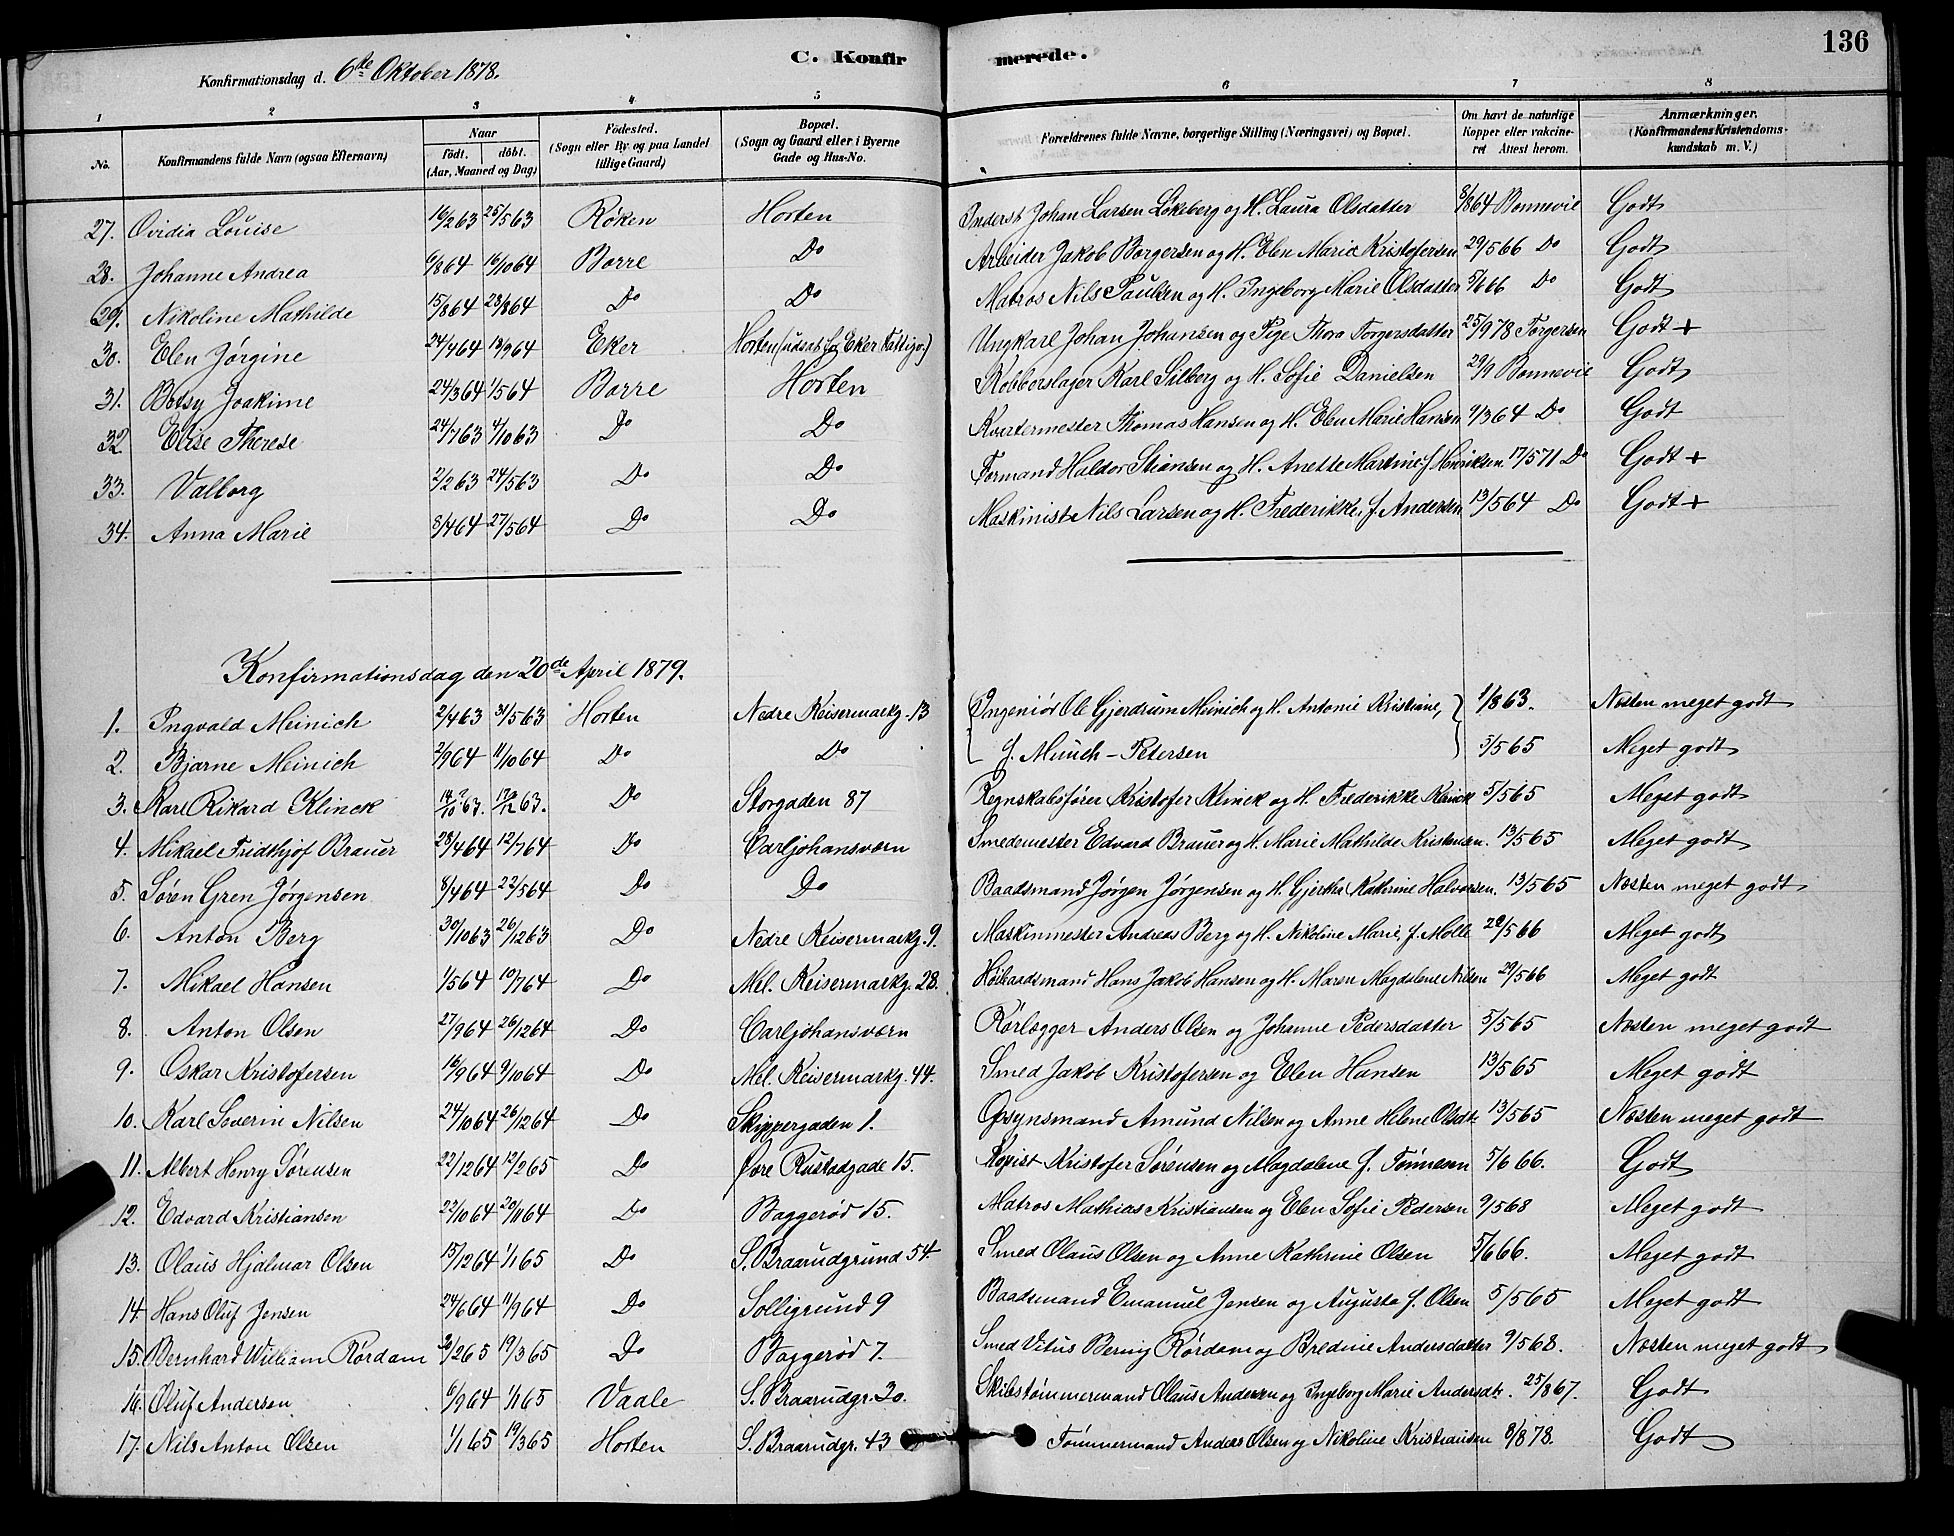 136
Konfirmationsdag d. 6te Oktober 1878. C. Konfirmerede.
1 2 3 4 5 6 7 8
No. Konfirmandens fulde Navn (ogsaa Efternavn) Naar født. døbt. (Aar, Maaned og Dag) Fødested. (Sogn eller By og paa Landet tillige Gaard) Bopæl. (Sogn og Gaard eller i Byerne Gade og Hus-No. Forældrenes fulde Navne, borgerlige Stilling (Næringsvei) og Bopæl. Om havt de naturlige Kopper eller vakcineret Attest herom. Anmærkninger. (Konfirmandens Kristendomskundskab m. V.)
27. Ovidia Louise 16/2 63 25/5 63 Røken Horten Inderst Johan Larsen Løkeberg og H. Laura Olsdatter 8/8 64 Bonnevie Godt
28. Johanne Andrea 6/8 64 16/10 64 Borre Do Arbeider Jakob Borgersen og H. Elen Marie Kristofersen 29/5 66 Do Godt
29. Nikoline Mathilde 15/8 64 28/8 64 Do Do Matros Nils Paulsen og H. Ingeborg Marie Olsdatter 5/6 66 Do Godt
30. Elen Jørgine 24/4 64 13/9 64 Eker Horten (udsat fra Eker Fattigv.) Ungkarl Johan Johansen og Pige Thora Torgersdatter 25/9 78 Torgersen Godt +
31. Betsy Joakime 24/3 64 1/5 64 Borre Horten Kobberslager Karl Silberg og H. Sofie Danielsen 29/9 Bonnevie Godt
32 Elise Therese 24/7 63 4/10 63 Do Do Kvartermester Thomas Hansen og H. Elen Marie Hansen 9/3 64 Do Godt
33. Valborg 2/2 63 24/5 63 Do Do Formand Haldor Stiansen og H. Anette Martine f. Henriksen 17/5 71 Do Godt +
34. Anna Marie 8/4 64 27/5 64 Do Do Maskinist Nils Larsen og H. Frederikke, f. Andersen 13/5 64 Do Godt +
Konfirmationsdag den 20de April 1879.
1. Ingvald Meinich 2/4 63 31/5 63 Horten Nedre Keisermarkg. 13 Ingeniør Ole Gjerdrum Meinich og H. Antonie Kristiane, 1/8 63. Næsten meget godt
2. Bjarne Meinich 2/9 64 11/10 64 Do Do f. Münch-Petersen 5/5 65 Meget godt
3. Karl Rikard Klinck 63. 63. Do Storgaden 87 Regnskabsfører Kristofer Klinck og H. Frederikke Klinck 5/5 65 Meget godt
4. Mikael Fridthjof Brauer 28/4 64 12/7 64 Do Carljohansværn Smedemester Edvard Brauer og H. Marie Mathilde Kristensen. 13/5 65 Meget godt
5. Søren Gren Jørgensen 8/4 64 22/5 64 Do Do Baadsmand Jørgen Jørgensen og H. Gjertha Kathrine Halvorsen. 13/5 65 Næsten meget godt
6. Anton Berg 30/10 63 26/12 63 Do Nedre Keisermarkg. 9. Maskinmester Andreas Berg og H. Nikoline Marie, f. Molle 29/5 66 Meget godt
7. Mikael Hansen 1/5 64 10/7 64 Do Mel. Keisermarkg. 28. Høibaadsmand Hans Jakob Hansen og H. Maren Magdalene Nilsen 29/5 66 Meget godt
8. Anton Olsen 27/9 64 26/12 64 Do Carljohansværn Rørlægger Anders Olsen og Johanne Pedersdatter 5/5 65 Næsten meget godt
9. Oskar Kristofersen 16/9 64 9/10 64 Do Mel. Keisermarkg. 44. Smed Jakob Kristofersen og Elen Hansen 13/5 65 Meget godt
10. Karl Severin Nilsen 24/10 64 26/12 64 Do Skippergaden 1. Opsynsmand Amund Nilsen og Anne Helene Olsdtr 13/5 65 Næsten meget godt
11. Albert Henry Sørensen 22/12 64 12/2 65 Do Øvre Rustadgade 15. Kopist Kristofer Sørensen og Magdalene f. Tønnesen 5/6 66. Godt
12. Edvard Kristiansen 22/10 64 20/11 64 Do Baggerød 15. Matros Mathias Kristiansen og Elen Sofie Pedersen 9/5 68 Meget godt
13. Olaus Hjalmar Olsen 15/12 64 1/1 65 Do S. Braarudgrund 54. Smed Olaus Olsen og Anne Kathrine Olsen 5/6 66. Meget godt
14. Hans Oluf Jensen 24/6 64 11/9 64 Do Solligrund 9 Baadsmand Emanuel Jensen og Augusta f. Olsen 5/5 65 Meget godt
15. Bernhard William Rørdam 2/2 65 19/3 65 Do Baggerød 7. Smed Vitus Bering Rørdam og Bredine Andersdatter 9/5 68. Næsten meget godt
16. Oluf Andersen 6/9 64 1/1 65 Vaale S. Braarudgr. 30. Skibstømmermand Olaus Andersen og Ingeborg Marie Andersdtr. 25/8 67. Godt
17. Nils Anton Olsen 1/1 65 19/3 65 Horten S. Braarudgr. 43 Tømmermand Anders Olsen og Nikoline Kristiansen 8/8 78. Godt